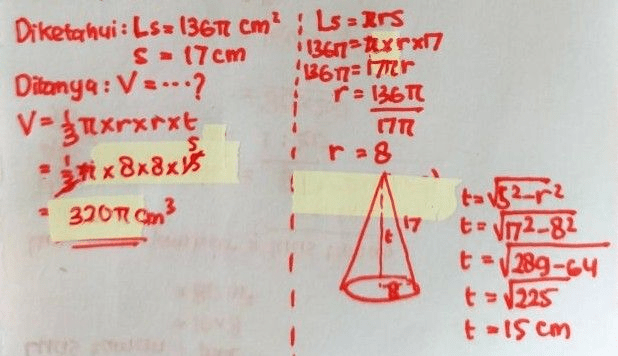 Diketahui : Ls = 136π cm²
S = 17 cm
Ditanya : V = ...?
V = 1/3 π x r x r x t
= 1/3 π x 8 x 8 x 15 5
= 320π cm³
Ls = πrs
136π = π x r x 17
136π = 17πr
r = 136π/17π
r = 8
17
t
8
t = √5² - r²
t = √17² - 8²
t = √289 - 64
t = √225
t = 15 cm